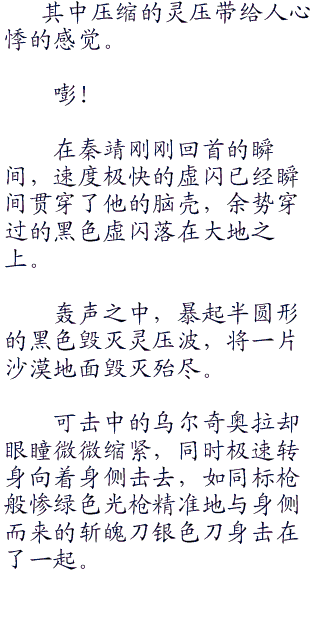 其中压缩的灵压带给人心
悸的感觉。
嘭！
在秦靖刚刚回首的瞬
间，速度极快的虚闪已经瞬
间贯穿了他的脑壳，余势穿
过的黑色虚闪落在大地之
上。
轰声之中，暴起半圆形
的黑色毁灭灵压波，将一片
沙漠地面毁灭殆尽。
可击中的乌尔奇奥拉却
眼瞳微微缩紧，同时极速转
身向着身侧击去，如同标枪
般惨绿色光枪精准地与身侧
而来的斩魄刀银色刀身击在
了一起。